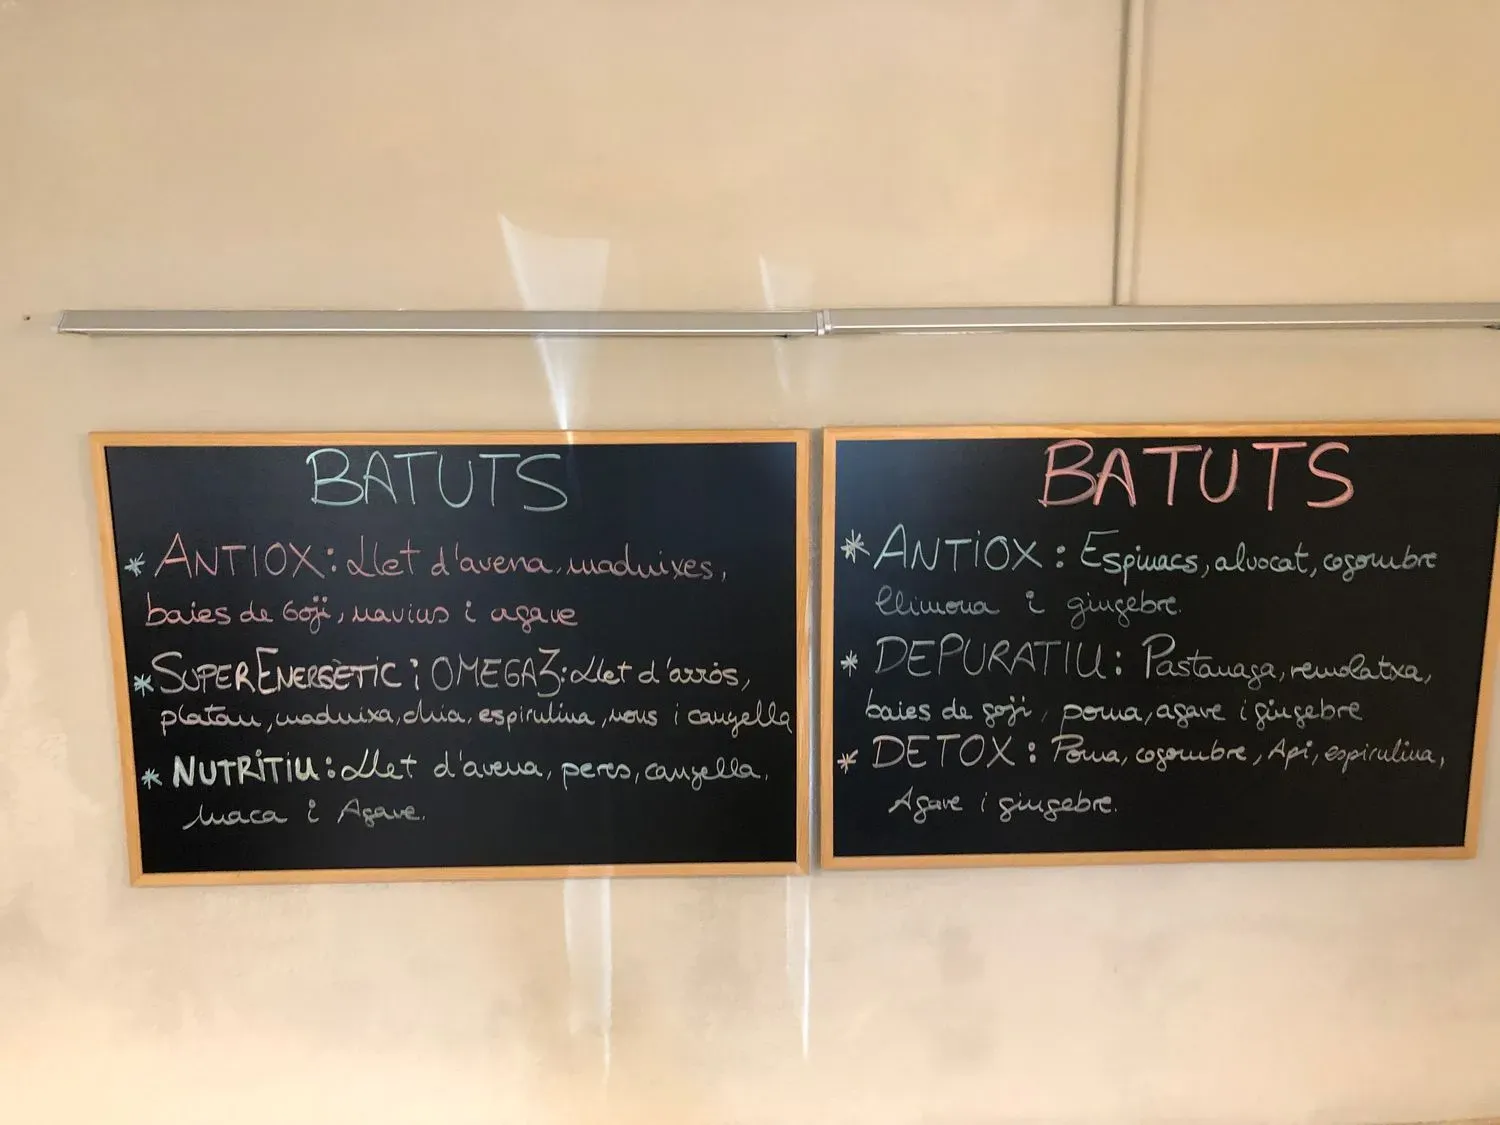 BATUTS
* ANTIOX: Llet d'avena, maduixes,
baies de Goji, navius i agave
* SUPERENERGÈTIC i OMEGA3: Llet d'arròs,
platan, maduixa, chia, espirulina, nous i canyella
* NUTRITIU: Llet d'avena, peres, canyella,
maca i Agave.
BATUTS
* ANTIOX: Espinacs, alvocat, cogombre
llimona i gingebre.
* DEPURATIU: Pastanaga, remolatxa,
baies de goji, poma, agave i gingebre
* DETOX: Poma, cogombre, Api, espirulina,
Agave i gingebre.